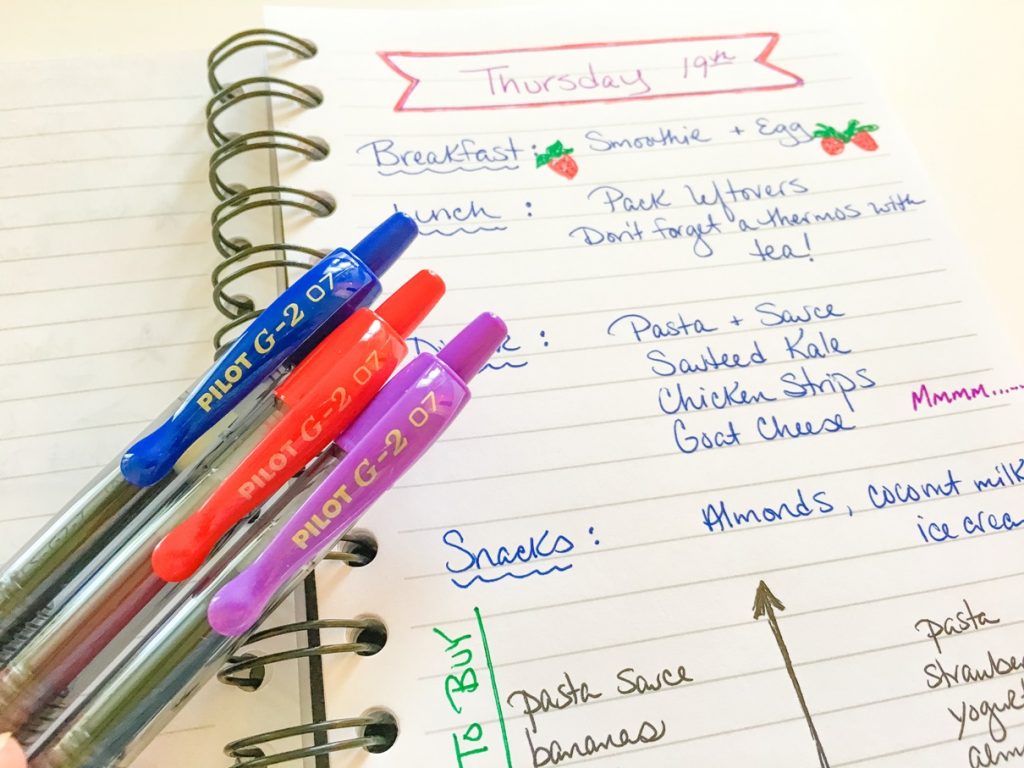 Thursday 19th
Breakfast: Smoothie + Egg
Lunch : Pack leftovers
Don't forget a thermos with
tea!
: Pasta + Sauce
Sauteed Kale
Chicken Strips
Mmmm......
Goat Cheese
Snacks : Almonds, coconut milk
ice crea
TO BUY
pasta sauce
bananas
pasta
strawber
yogu
alm
PILOT G-2 07
PILOT G-2 07
PILOT G-2 07